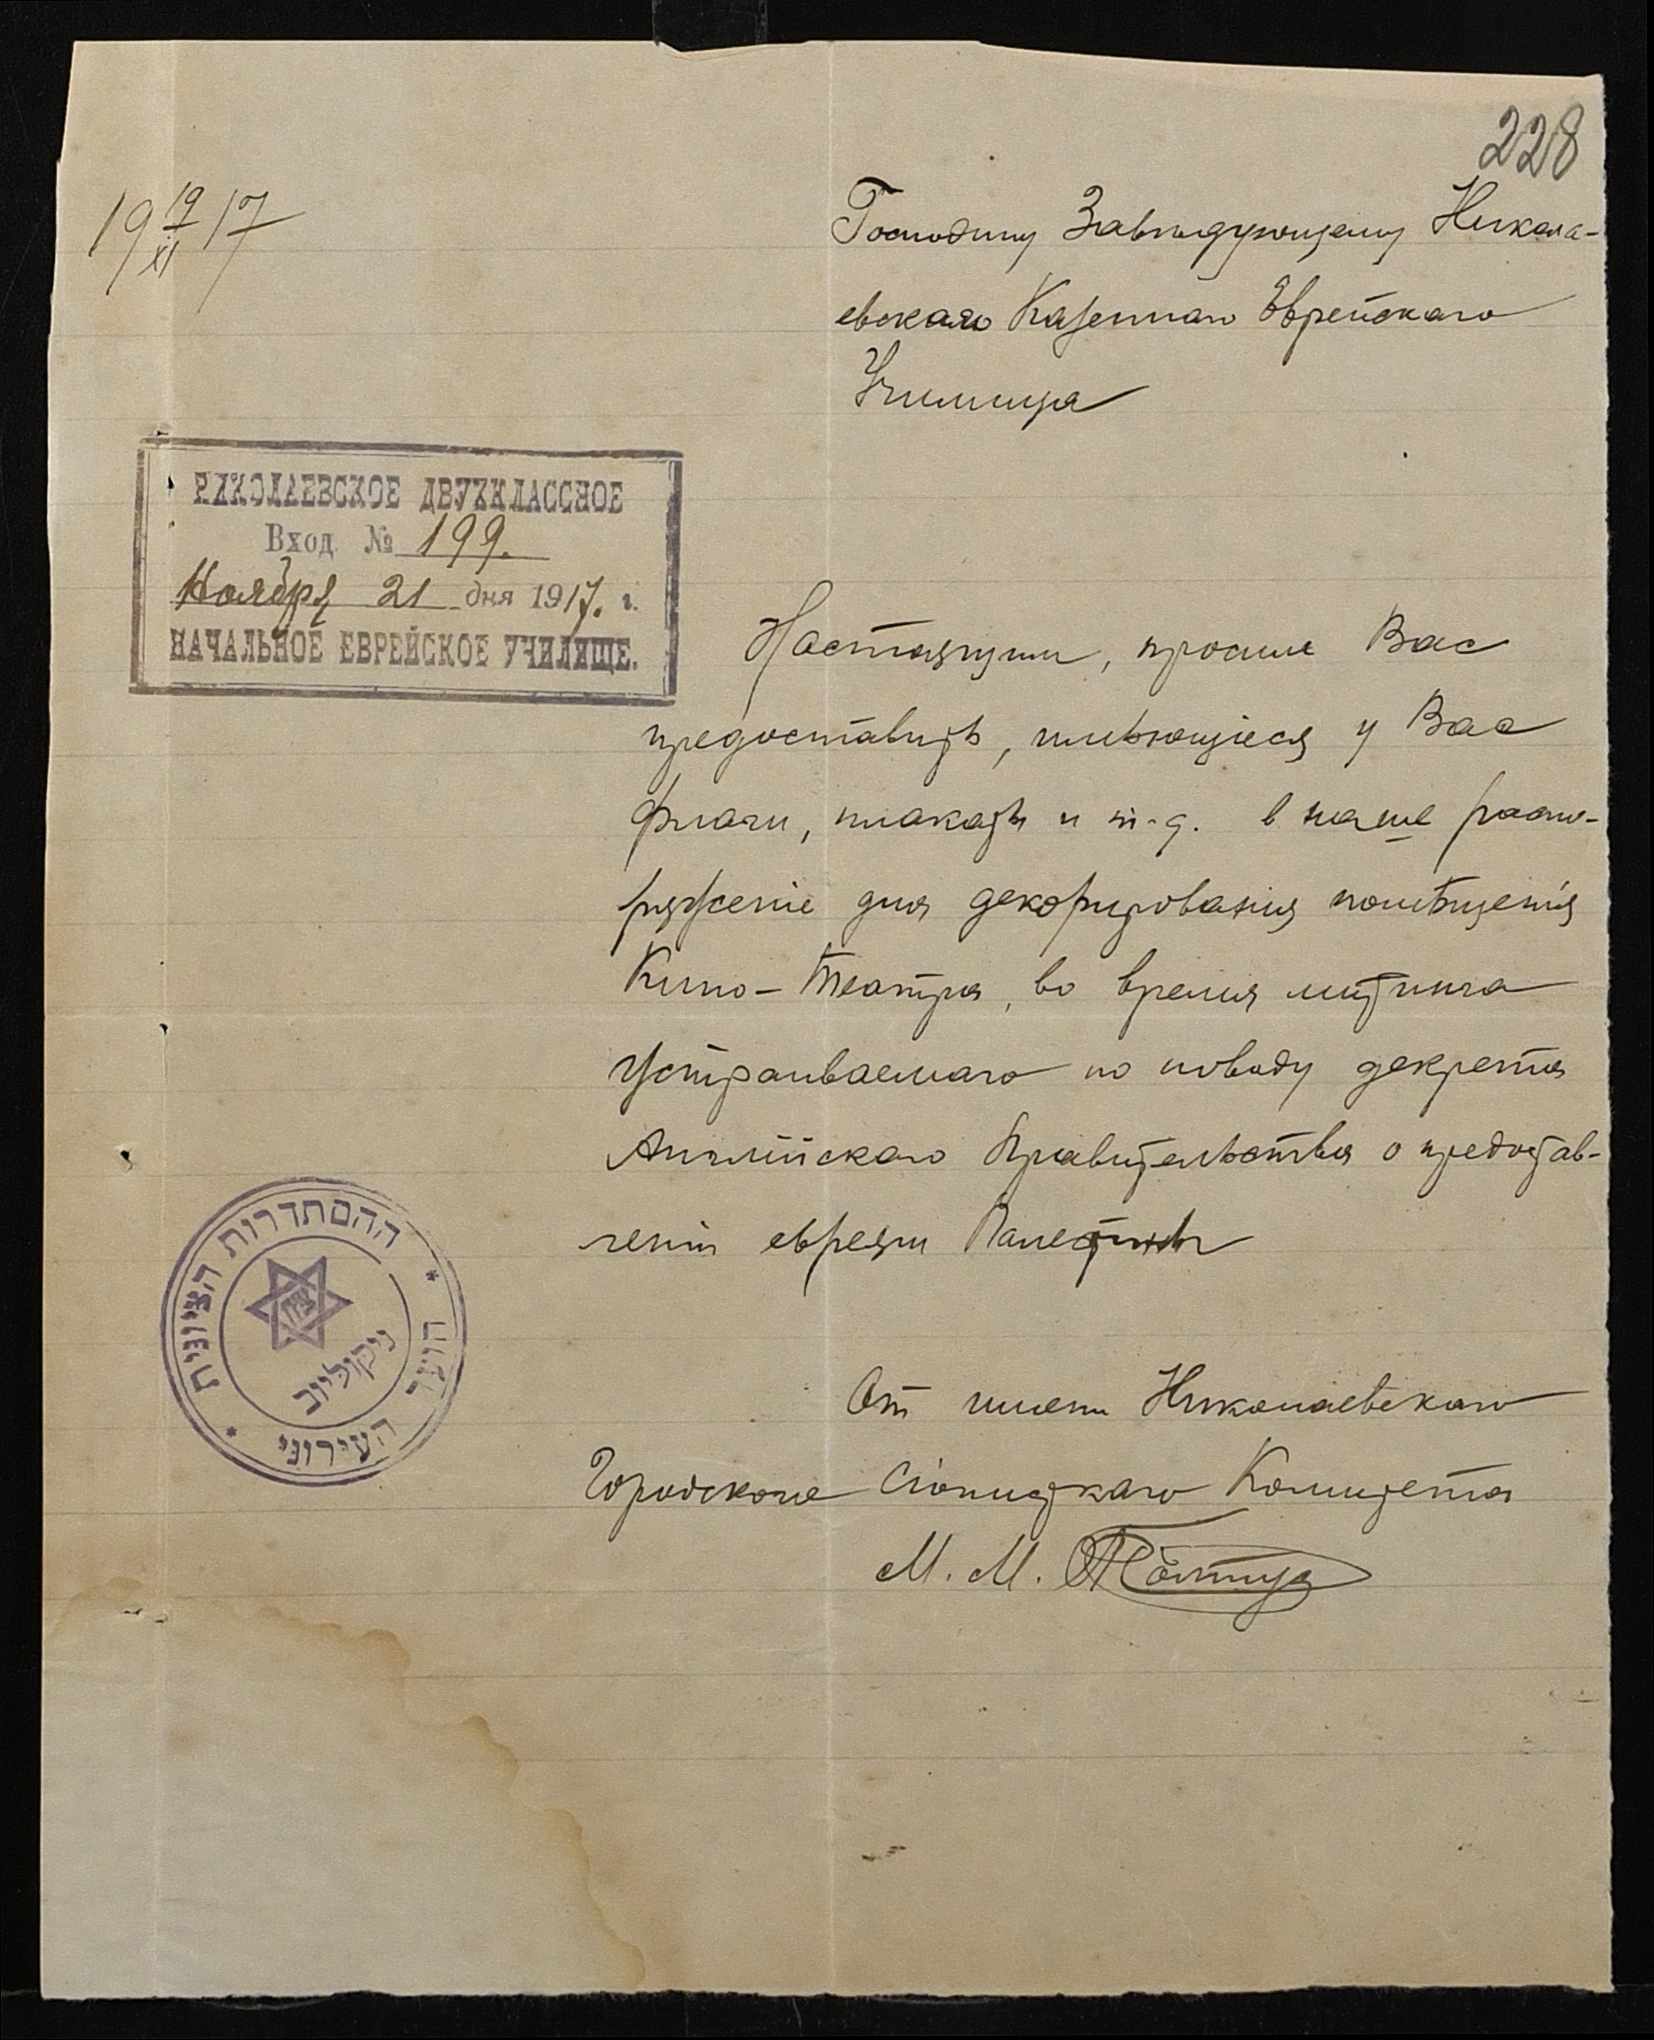 228
19 19/XI 17
Господину Завѣдующему Никола-
евскаго Казеннаго Еврейскаго
Училища
НИКОЛАЕВСКОЕ ДВУХКЛАССНОЕ
Вход. № 199.
Ноября 21 дня 1917. г.
НАЧАЛЬНОЕ ЕВРЕЙСКОЕ УЧИЛИЩЕ.
Настоящим, просим Вас
предоставить, имѣющіеся у Вас
флаги, плакаты и т.д. в наше распо-
ряженіе для декорированія помѣщенія
Кино-Театра, во время митинга
Устраиваемаго по поводу декрета
Англійскаго Правительства о предостав-
леніи евреям Палестины
ההסתדרות הציונית
* הועד העירוני *
ציון
ניקולייב
От имени Николаевскаго
Городского Сіонистскаго Комитета
М. М.